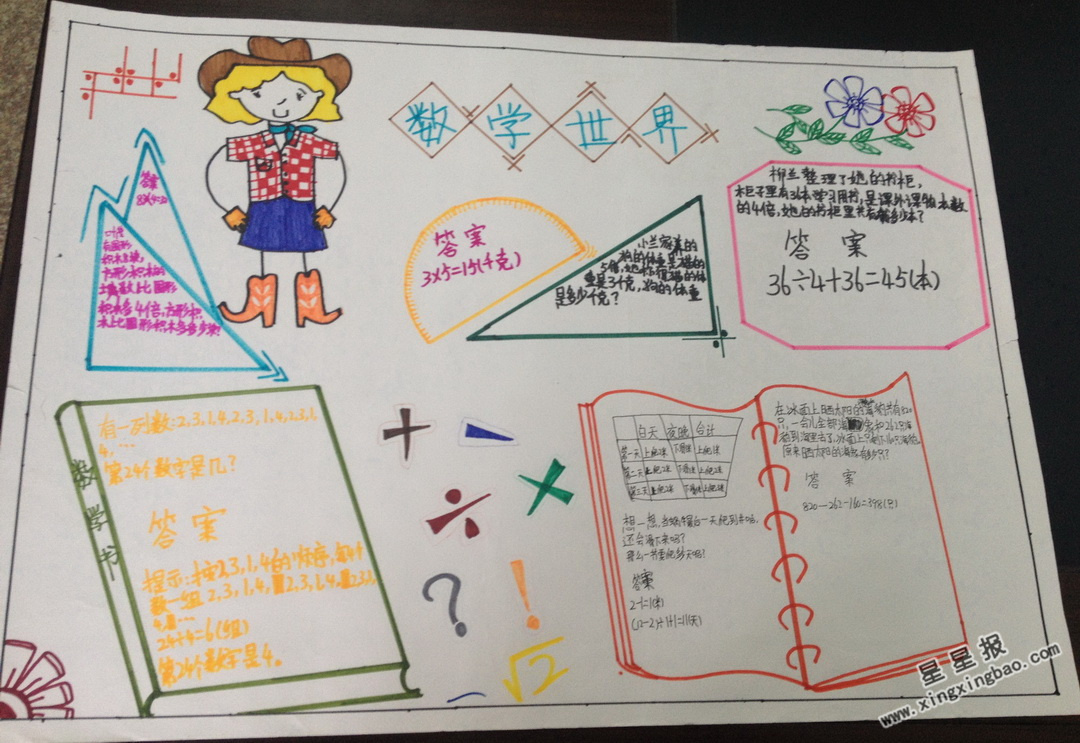 数学世界
答案
8×4=32
有圆形
积木8块,
方形积木的
块数比圆形
积木多4倍,方形积
木比圆形积木多多少块?
答案
3×5=15(千克)
小兰家养的
狗的体重是猫的
5倍,她家猫的体
重是3千克,狗的体重
是多少千克?
柳兰整理了她的书柜,
柜子里有36本学习用书,是课外读物本数
的4倍,她的书柜里共有书多少本?
答案
36÷4+36=45(本)
数学书
有一列数:2,3,1,4,2,3,1,4,2,3,1,
4,……
第24个数字是几?
答案
提示:按2,3,1,4的顺序,每4个
数一组 2,3,1,4, 2,3,1,4, 2,3,1,
4, ……
24÷4=6(组)
第24个数字是4。
+ −
÷ ×
? !
√2
白天 夜晚 合计
第一天 上爬2米 下滑1米 上爬1米
第二天 上爬2米 下滑1米 上爬1米
第三天 上爬2米 下滑1米 上爬1米
想一想,当蜗牛最后一天爬到井口时,
还会滑下来吗?
那么一共要爬多少天呢?
答案
2-1=1(米)
(12-2)÷1+1=11(天)
在冰面上晒太阳的海豹共有820
只,一会儿全部
跑到海里去了,冰面上只剩下160只海狗,
答案
820-262-160=398(只)
星星报
www.xingxingbao.com